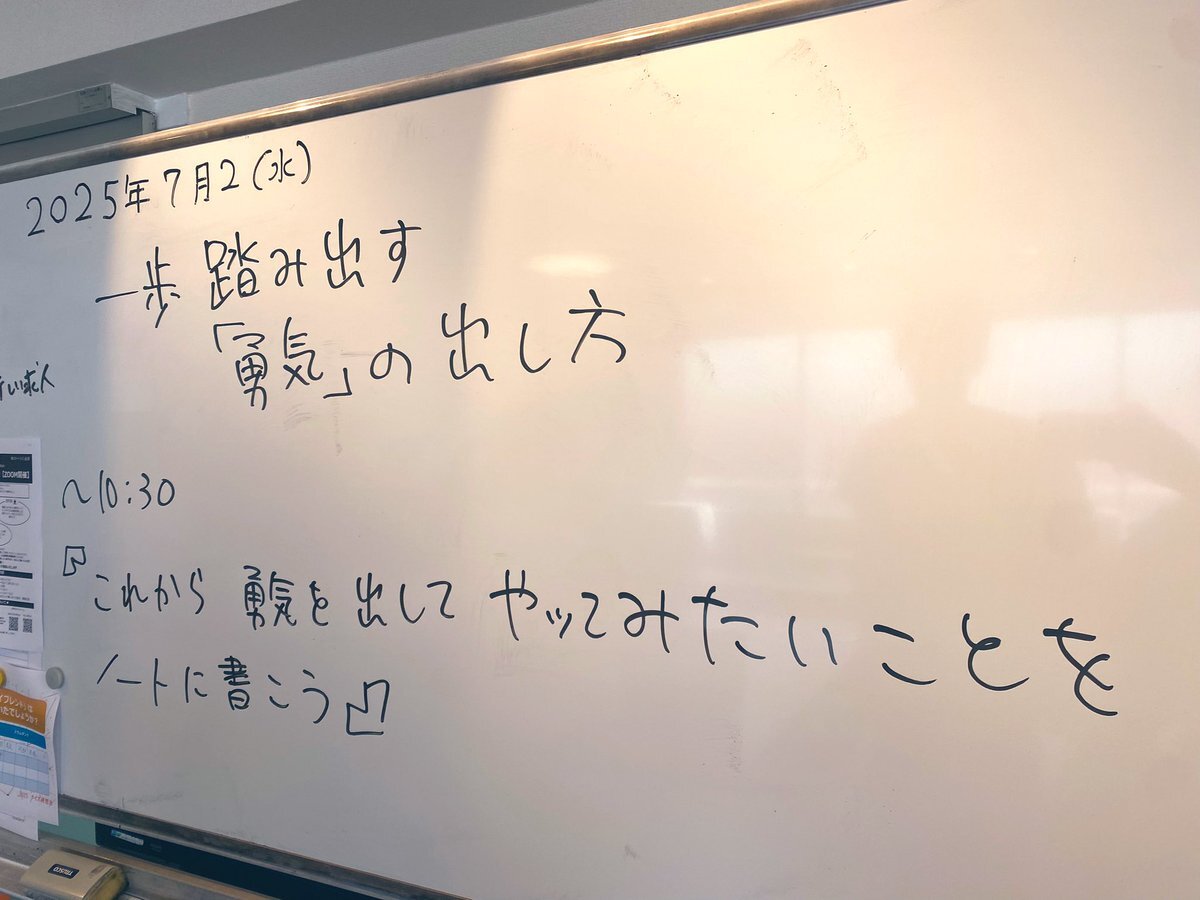 2025年7月2(水)
一歩踏み出す
「勇気」の出し方
い求人
~10:30
『これから勇気を出してやってみたいことを
ノートに書こう』
【ZOOM開催】
TRUSCO